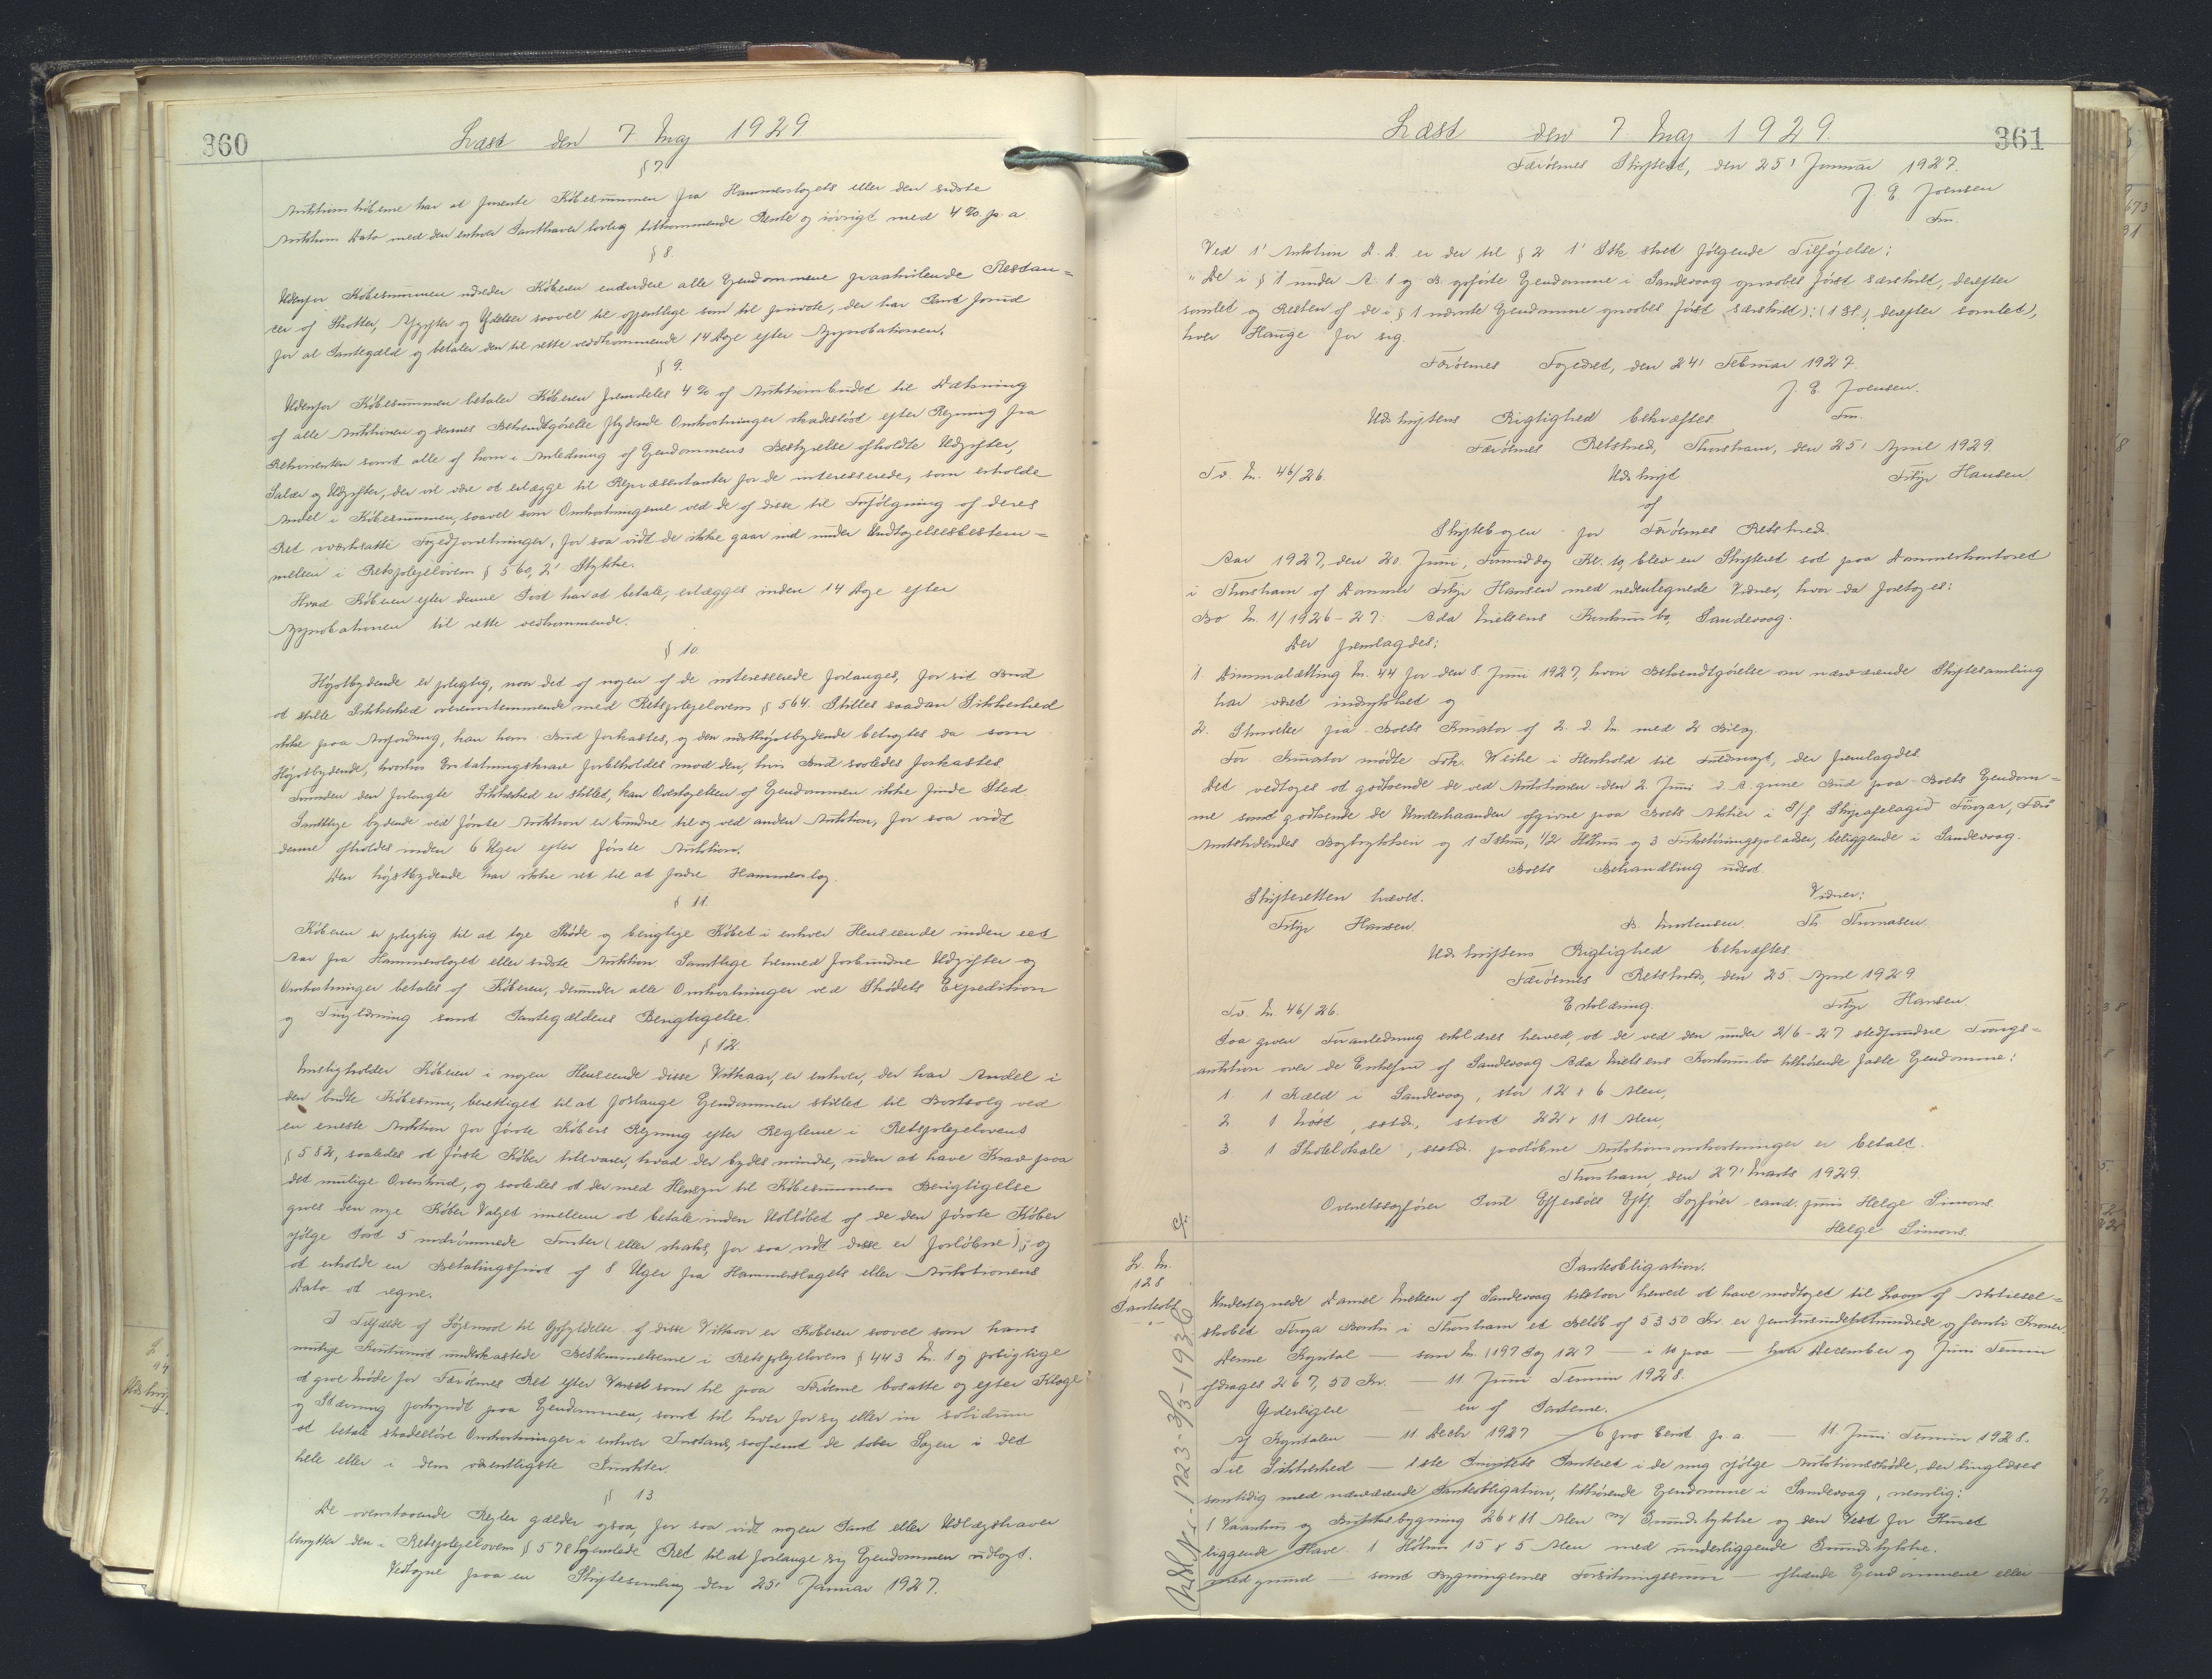 360
Læst den 7 Maj 1929
§ 7.
Auktionskøberne har at forrente Købesummen fra Hammerslagets eller den sidste
Auktions Dato med den enhver Panthaver lovlig tilkommende Rente og iøvrigt med 4 % p. a.
§ 8.
Udenfor Købesummen udreder Køberen endvidere alle Ejendommene paahvilende Restan=
cer af Skatter, Afgifter og Ydelser saavel til offentlige som til private, der har Pant forud
for al Pantegæld og betaler den til rette vedkommende 14 Dage efter Approbationen.
§ 9.
Udenfor Købesummen betaler Køberen fremdeles 4 % af Auktionsbudet til Dækning
af alle Auktionen og dennes Bekendtgørelse flydende Omkostninger skadesløst efter Regning fra
Rekvirenten samt alle af ham i Anledning af Ejendommens Bestyrelse afholdte Udgifter,
Salær og Udgifter, der vil være at erlægge til Repræsentanter for de interesserede, som erholde
Andel i Købesummen, saavel som Omkostningerne ved de af disse til Forfølgning af deres
Ret iværksatte Fogedforretninger, for saa vidt de ikke gaar ind under Undtagelsesbestem=
melsen i Retsplejelovens § 560, 2' Stykke.
Hvad Køberen efter denne Post har at betale, erlægges inden 14 Dage efter
Approbationen til rette vedkommende.
§ 10
Højstbydende er pligtig, naar det af nogen af de interesserede forlanges, for sit Bud
at stille Sikkerhed overensstemmende med Retsplejelovens § 564. Stilles saadan Sikkerhed
ikke paa Anfordring, kan hans Bud forkastes, og den næsthøjstbydende betragtes da som
Højstbydende, hvorhos Erstatningskrav forbeholdes mod den, hvis Bud saaledes forkastes.
Forinden den forlangte Sikkerhed er stillet, kan Overtagelsen af Ejendommen ikke finde Sted.
Samtlige bydende ved første Auktion er bundne til og ved anden Auktion, for saa vidt
denne afholdes inden 6 Uger efter første Auktion.
Den højstbydende har ikke ret til at fordre Hammerslag.
§ 11.
Køberen er pligtig til at tage Skøde og berigtige Købet i enhver Henseende inden eet
Aar fra Hammerslaget eller sidste Auktion. Samtlige hermed forbundne Udgifter og
Omkostninger betales af Køberen, derunder alle Omkostninger ved Skødets Expedition
og Tinglæsning samt Pantegældens Berigtigelse.
§ 12.
Misligholder Køberen i nogen Henseende disse Vilkaar, er enhver, der har Andel i
den budte Købesum, berettiget til at forlange Ejendommen stillet til Bortsalg ved
en eneste Auktion for første Købers Regning efter Reglerne i Retsplejelovens
§ 582, saaledes at første Køber tilsvarer, hvad der bydes mindre, uden at have Krav paa
det mulige Overskud, og saaledes at der med Hensyn til Købesummens Berigtigelse
gives den nye Køber Valget imellem at betale inden Udløbet af de den første Køber
ifølge Post 5 indrømmede Frister (eller straks, for saa vidt disse er forløbne); og
at erholde en Betalingsfrist af 8 Uger fra Hammerslagets eller Auktionens
Dato at regne.
I Tilfælde af Søgsmaal til Opfyldelse af disse Vilkaar er Køberen saavel som hans
mulige Kautionist underkastede Bestemmelserne i Retsplejelovens § 443 Nr. 1 og pligtige
at give Møde for Færøernes Ret efter Varsel som til paa Færøerne bosatte og efter Klage
og Stævning forkyndt paa Ejendommen, samt til hver for sig eller in solidum
at betale skadesløse Omkostninger i enhver Instans, saafremt de taber Sagen i det
hele eller i dens væsentligste Punkter.
§ 13
De ovenstaaende Regler gælder ogsaa, for saa vidt nogen Pant eller Udlægshaver
benytter den i Retsplejelovens § 578 hjemlede Ret til at forlange sig Ejendommen udlagt.
Vedtagne paa en Skiftesamling den 25' Januar 1927.
361
Læst den 7 Maj 1929.
Færøernes Skifteret, den 25' Januar 1927.
J. E. Joensen
Fm.
Ved 1' Auktion D. D. er der til § 2 1' Stk. sket følgende Tilføjelse:
"De i § 1 under A. 1 og B. opførte Ejendomme i Sandevaag opraabes først særskilt, derefter
samlet og Resten af de i § 1 nævnte Ejendomme opraabes først særskilt): (1 Sl.) derefter samlet),
hver Hauge for sig.
Færøernes Fogedret, den 24' Februar 1927.
J. E. Joensen.
Fm.
Udskriftens Rigtighed bekræftes
Færøernes Retskreds, Thorshavn, den 25' April 1929.
Tv. Nr. 46/26. Udskrift Filip Hansen
af
Skiftebogen for Færøernes Retskreds.
Aar 1927, den 20. Juni, Formiddag Kl. 10, blev en Skifteret sat paa Dommerkontoret
i Thorshavn af Dommer Filip Hansen med nedentegnede Vidner, hvor da foretoges:
Bo Nr. 1/1926-27: Ada Nielsens Konkursbo, Sandevaag.
Der fremlagdes:
1. Dimmalætting Nr. 44 for den 8 Juni 1927, hvori Bekendtgørelse om nærværende Skiftesamling
har været indrykket og
2. Skrivelse fra Boets Kurator af 2. d. M. med 2 Bilag.
For Kurator mødte Fuldm. Weihe i Henhold til Fuldmagt, der fremlagdes.
Det vedtoges at godkende de ved Auktionen den 2. Juni d. A. givne Bud paa Boets Ejendom=
me samt godkende de Underhaanden afgivne paa Boets Aktier i S/f. Skipafelagið Føroyar, Færø
Amtstidendes Bogtrykkeri og 1 Ishus, 1/2 Høhus og 3 Fisketørringspladser, beliggende i Sandevaag.
Boets Behandling udsat.
Skifteretten hævet. Vidner:
Filip Hansen. B. Mortensen. Th. Thomasen.
Udskriftens Rigtighed bekræftes.
Færøernes Retskreds, den 25. April 1929
Tv. Nr. 46/26. Erklæring. Filip Hansen.
Paa given Foranledning erklæres herved, at de ved den under 2/6-27 stedfundne Tvangs=
auktion over de Enkefru af Sandevaag Ada Nielsens Konkursbo tilhørende faste Ejendomme:
1. 1 Kæld i Sandevaag, stor 12 x 6 Alen,
2 1 Nøst, sstds., stort 22 x 11 Alen,
3 1 Skolelokale, sstds. paaløbne Auktionsomkostninger er betalt.
Thorshavn, den 27' Marts 1929.
Overretssagfører Poul Effersøes Eftf. Sagfører cand. juris Helge Simons
Helge Simons.
cfr.
L. Nr.
128
Pantobl
Pantobligation.
Undertegnede Daniel Nielsen af Sandevaag tilstaar herved at have modtaget til Laans af Aktiesel=
skabet Føroya Banki i Thorshavn et Beløb af 5350 Kr. er femtusindetrehundrede og femti Kroner.
Denne Kapital — som Nr. 1197 og 127 — i 10 paa — hver December og Juni Termin
afdrages 267,50 Kr. — 11 Juni Termin 1928.
Yderligere — en af Parterne.
Af Kapitalen — 11 Decbr 1927 — 6 pro Cent p. a. — 11. Juni Termin 1928.
Til Sikkerhed — 1ste Prioritets Panteret i de mig ifølge Auktionsskøde, der tinglæses
samtidig med nærværende Pantobligation, tilhørende Ejendomme i Sandevaag, nemlig:
1 Vaanhus og Butiksbygning 26 x 11 Alen m/ Grundstykke og den Vest for Huset
liggende Have. 1 Høhus 15 x 5 Alen med underliggende Grundstykke.
med grund — samt Bygningernes Forsikringssum — afhænde Ejendommene eller
Udsl. Nr. 1723-3/3-1936